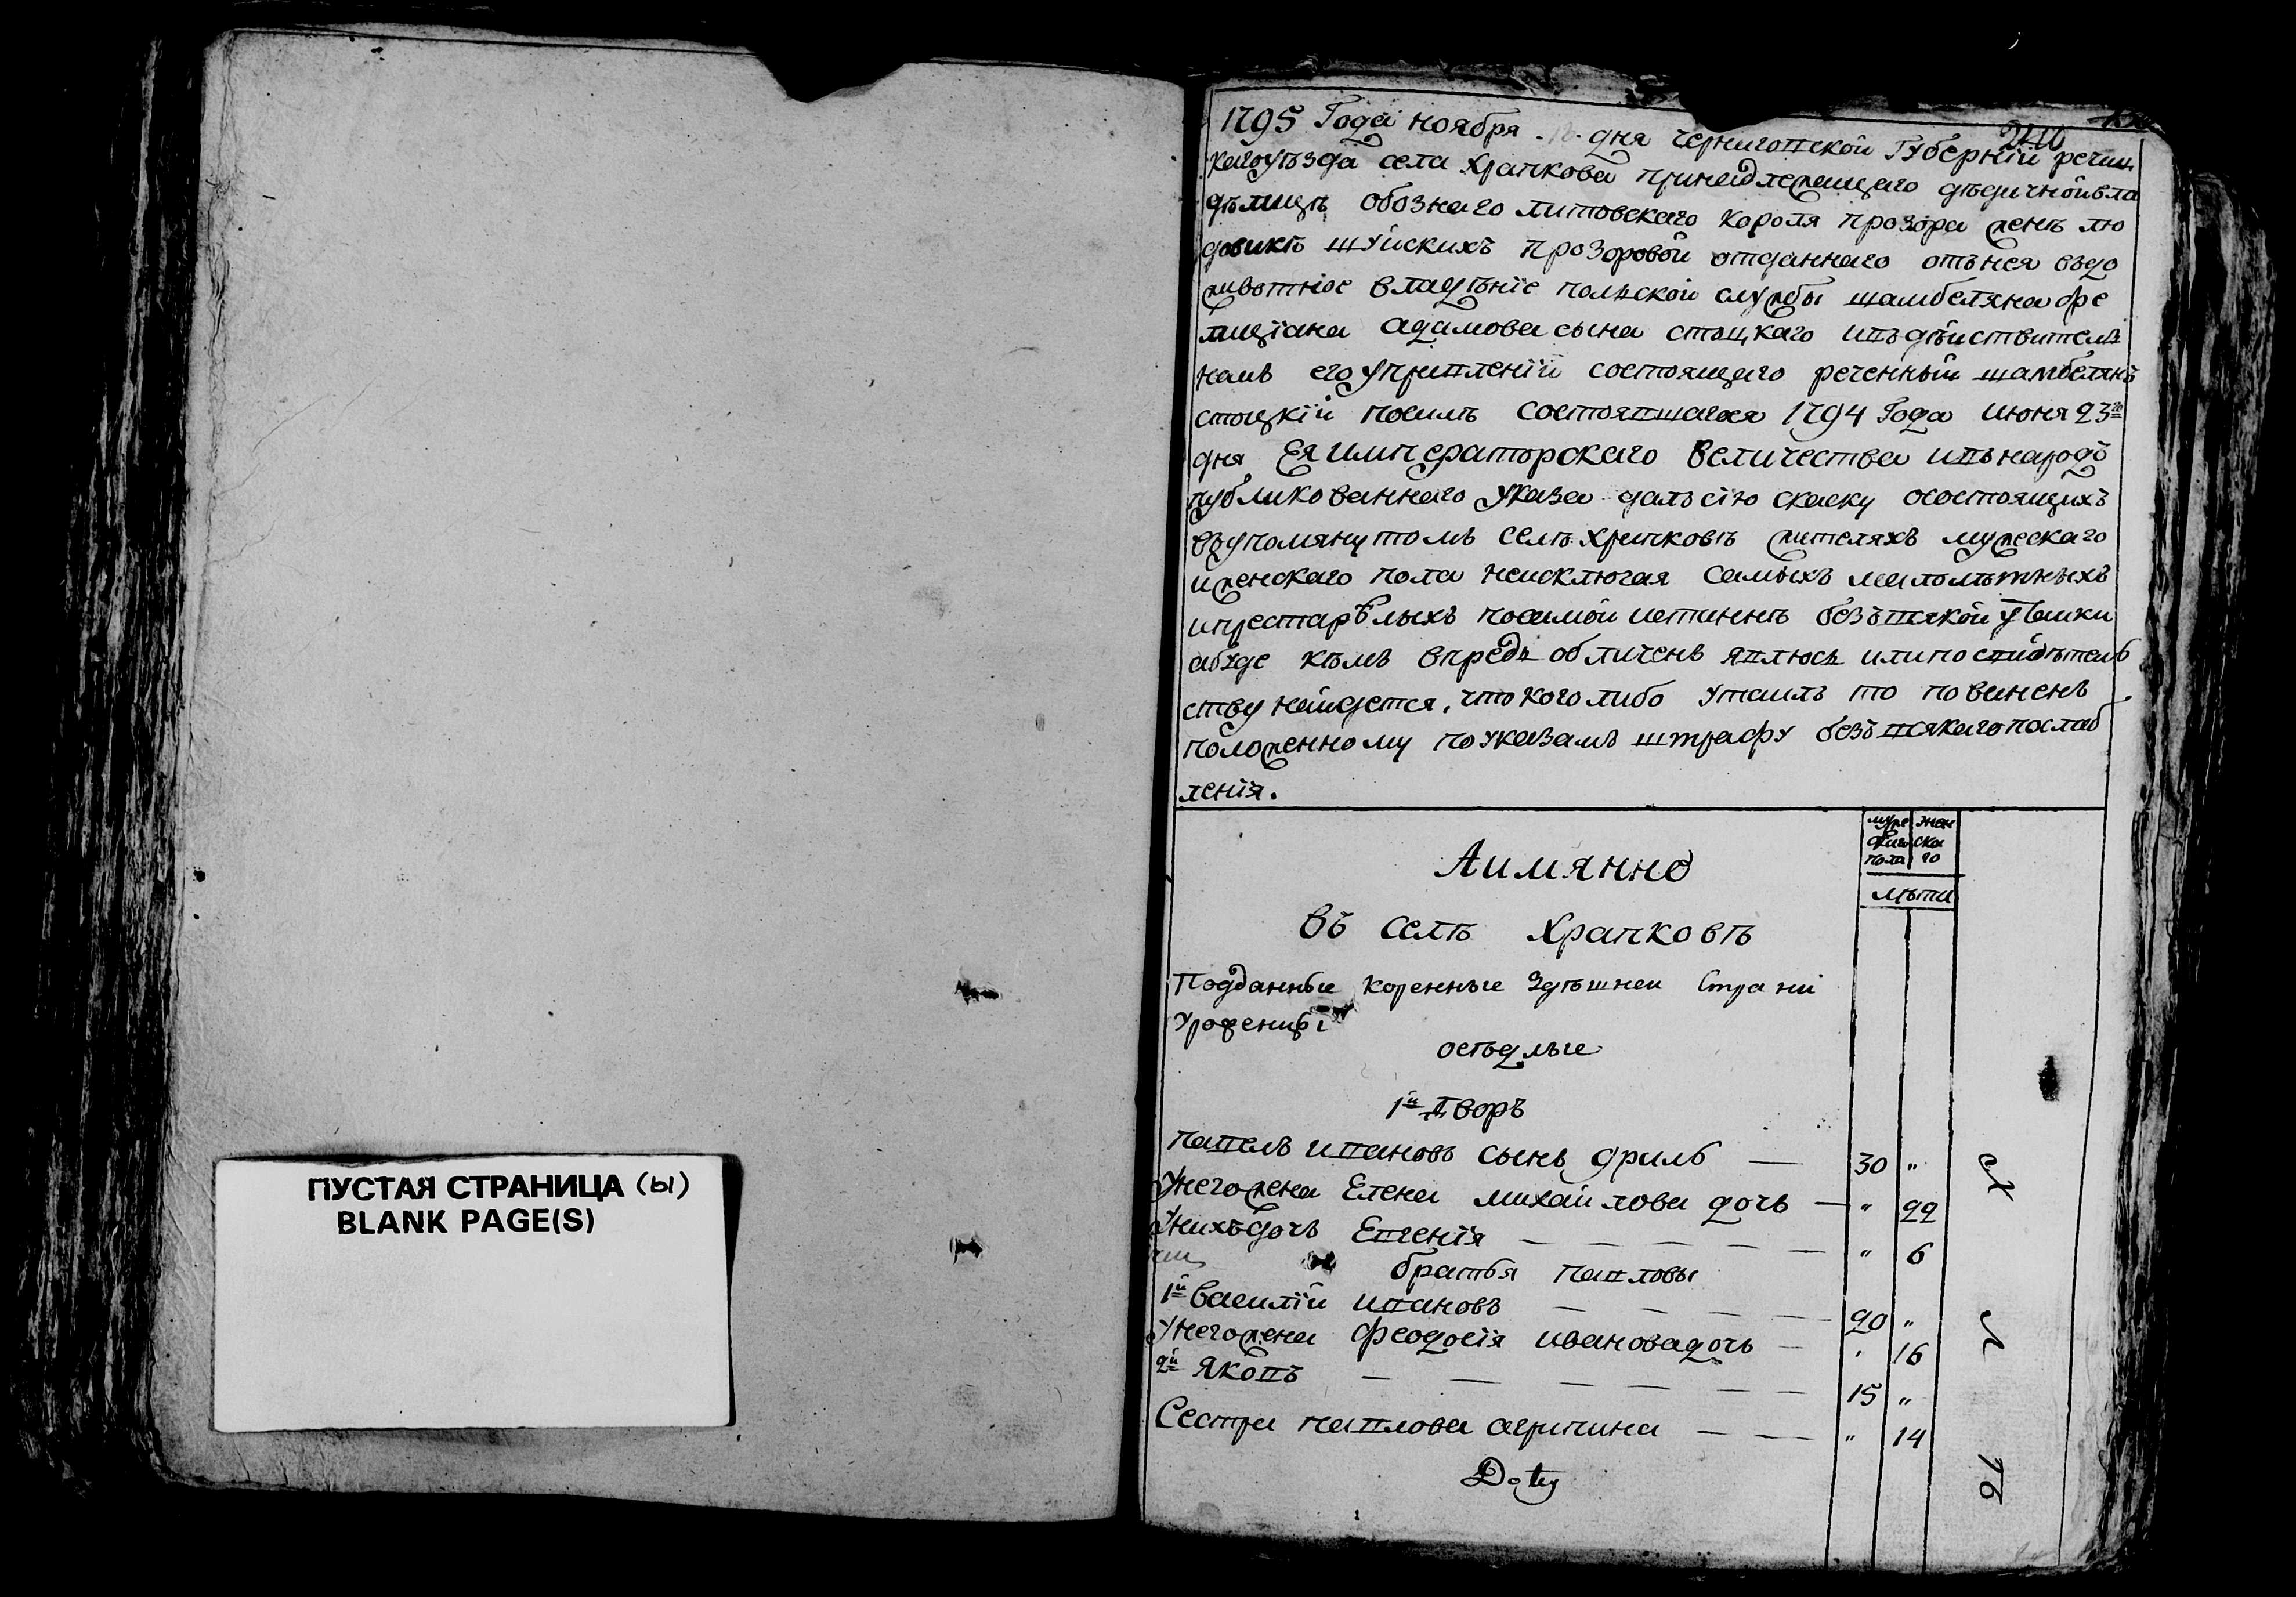 ПУСТАЯ СТРАНИЦА (ы)
BLANK PAGE(S)
1795 Года ноября дня черниговской Губерніи речиц
кагоуѣзда села Храпкова принадлежащего дѣдичнойвла
дѣлицѣ обознаго литовскаго короля прозора женѣ лю
довикѣ шуйскихъ прозоровой отданнаго отънея въдо
животнюе владѣніе полской службы шамбеляна фе
лиціана адамова сына стоцкаго ивъдѣиствителъ
номъ его укрѣпленіи состоящего реченный шамбелянъ
стоцкій посилѣ состоявшагося 1794 Года июня 23го
дня Ея императорского величества ивънародъ
публикованнаго указа далъ сію скаску осостоящихъ
въупомянутомъ селѣ храпковѣ жителяхъ мужескаго
иженскаго пола неисключая самыхъ малолѣтныхъ
ипрестарѣлыхъ посамой истиннѣ безъвсякой утайки
абуде кѣмъ впредь обличенъ явлюсь илипо свидѣтель
ству найдется, что кого либо утаилъ то повиненъ
положенному поуказамъ штрафу безъвсякагопослаб
ленія.
муже жен
скаго ска
пола го
лѣта
Аимянно
въ селѣ Храпковѣ
Подданные коренные Здѣшней страни
Уроженцы
осѣдлые
1й дворъ
павелъ ивановъ сынъ дриль — 30 "
унегожена Елена михайлова дочь — " 22
унихъдочь Евгенія — — — — — " 6
братья павловы
1й василій ивановъ — — — — — 20 "
унегожена феодосія ивановадочь — " 16
2й яковъ — — — — — — 15 "
Сестра павлова агрипина — — " 14